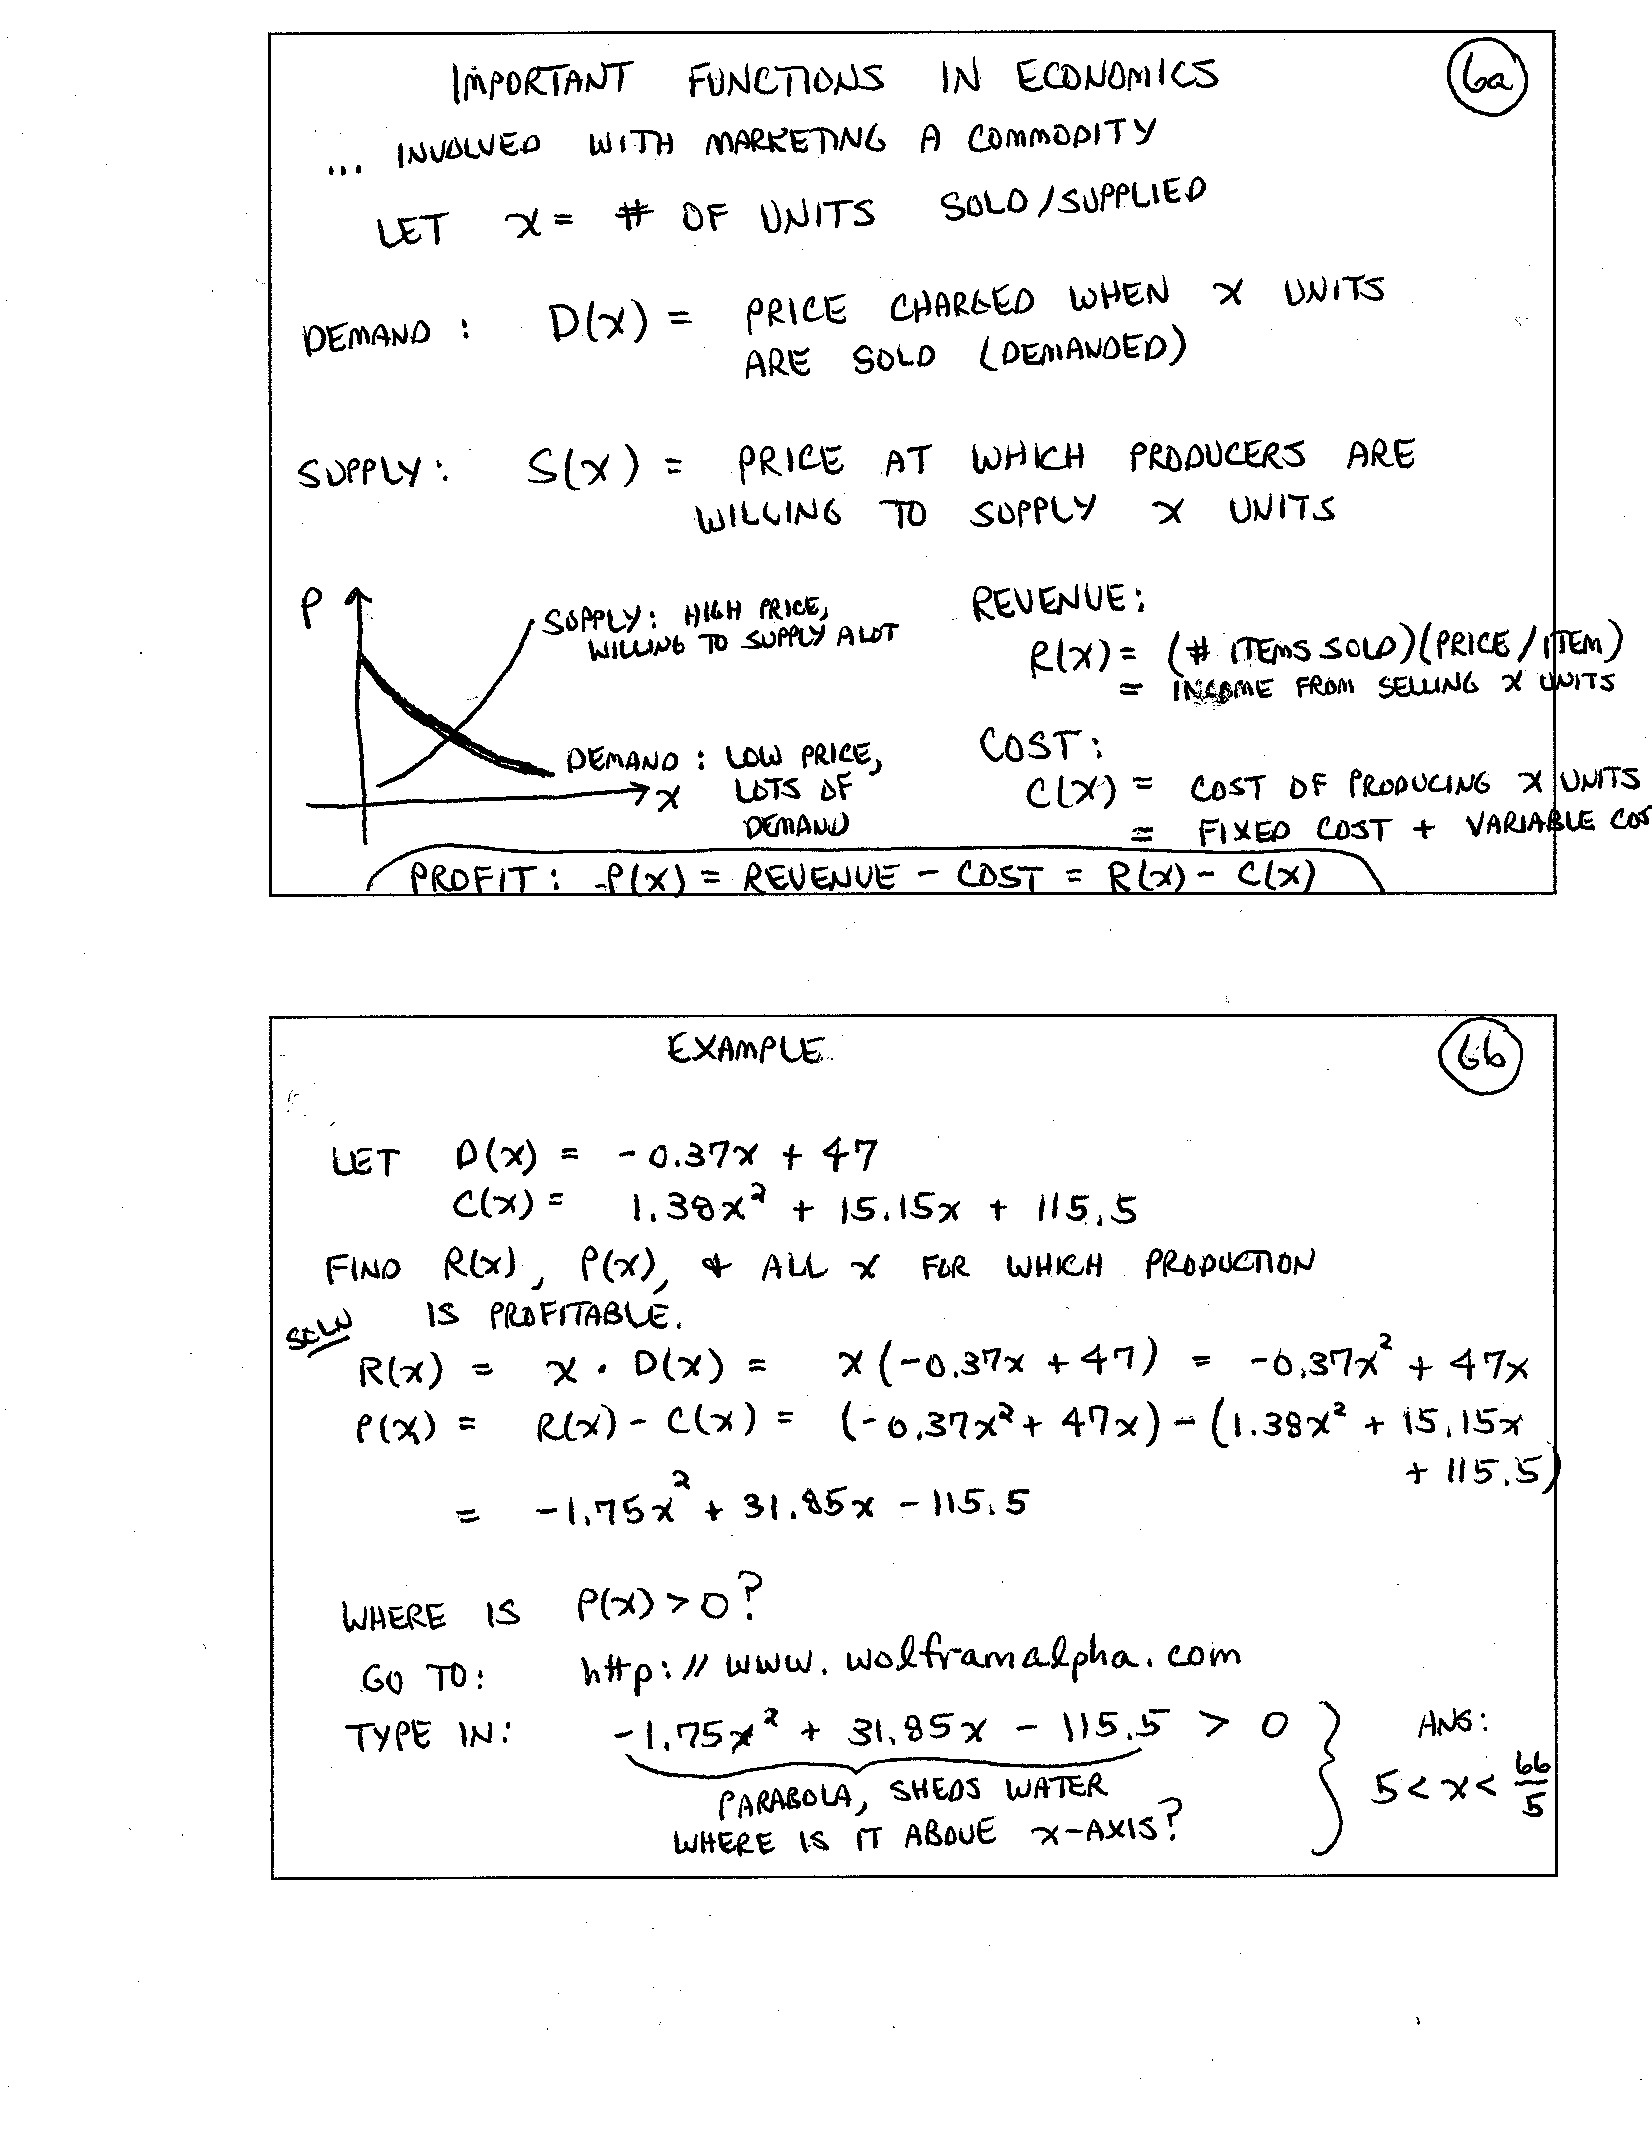 IMPORTANT FUNCTIONS IN ECONOMICS 6a
... INVOLVED WITH MARKETING A COMMODITY
LET x = # OF UNITS SOLD/SUPPLIED
DEMAND : D(x) = PRICE CHARGED WHEN x UNITS
ARE SOLD (DEMANDED)
SUPPLY: S(x) = PRICE AT WHICH PRODUCERS ARE
WILLING TO SUPPLY x UNITS
P
SUPPLY: HIGH PRICE,
WILLING TO SUPPLY A LOT
DEMAND : LOW PRICE,
x LOTS OF
DEMAND
REVENUE:
R(x) = (# ITEMS SOLD)(PRICE/ITEM)
= INCOME FROM SELLING x UNITS
COST:
C(x) = COST OF PRODUCING x UNITS
= FIXED COST + VARIABLE COS
PROFIT: P(x) = REVENUE - COST = R(x) - C(x)
EXAMPLE 6b
LET D(x) = -0.37x + 47
C(x) = 1.38x² + 15.15x + 115.5
FIND R(x), P(x), & ALL x FOR WHICH PRODUCTION
IS PROFITABLE.
SOLN
R(x) = x · D(x) = x(-0.37x + 47) = -0.37x² + 47x
P(x) = R(x) - C(x) = (-0.37x² + 47x) - (1.38x² + 15.15x
+ 115.5)
= -1.75x² + 31.85x - 115.5
WHERE IS P(x) > 0?
GO TO: http://www.wolframalpha.com
TYPE IN: -1.75x² + 31.85x - 115.5 > 0
PARABOLA, SHEDS WATER
WHERE IS IT ABOVE x-AXIS?
ANS:
5 < x < 66/5